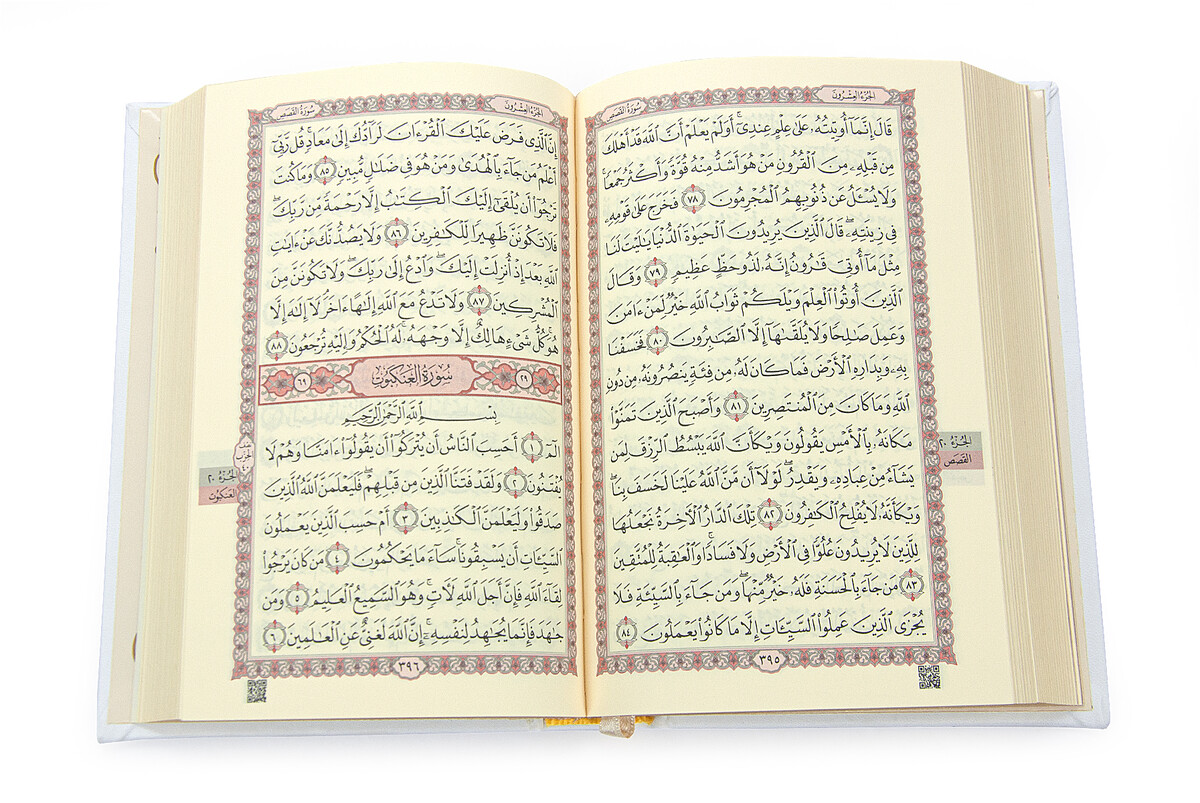 الجُزْءُ العِشْرُونَ
سُورَةُ القَصَصِ
قَالَ إِنَّمَآ أُوتِيتُهُۥ عَلَىٰ عِلْمٍ عِندِىٓ ۚ أَوَلَمْ يَعْلَمْ أَنَّ ٱللَّهَ قَدْ أَهْلَكَ
مِن قَبْلِهِۦ مِنَ ٱلْقُرُونِ مَنْ هُوَ أَشَدُّ مِنْهُ قُوَّةً وَأَكْثَرُ جَمْعًا ۚ
وَلَا يُسْـَٔلُ عَن ذُنُوبِهِمُ ٱلْمُجْرِمُونَ ٧٨ فَخَرَجَ عَلَىٰ قَوْمِهِۦ
فِى زِينَتِهِۦ ۖ قَالَ ٱلَّذِينَ يُرِيدُونَ ٱلْحَيَوٰةَ ٱلدُّنْيَا يَـٰلَيْتَ لَنَا
مِثْلَ مَآ أُوتِىَ قَـٰرُونُ إِنَّهُۥ لَذُو حَظٍّ عَظِيمٍ ٧٩ وَقَالَ
ٱلَّذِينَ أُوتُوا۟ ٱلْعِلْمَ وَيْلَكُمْ ثَوَابُ ٱللَّهِ خَيْرٌ لِّمَنْ ءَامَنَ
وَعَمِلَ صَـٰلِحًا وَلَا يُلَقَّىٰهَآ إِلَّا ٱلصَّـٰبِرُونَ ٨٠ فَخَسَفْنَا
بِهِۦ وَبِدَارِهِ ٱلْأَرْضَ فَمَا كَانَ لَهُۥ مِن فِئَةٍ يَنصُرُونَهُۥ مِن دُونِ
ٱللَّهِ وَمَا كَانَ مِنَ ٱلْمُنتَصِرِينَ ٨١ وَأَصْبَحَ ٱلَّذِينَ تَمَنَّوْا۟
مَكَانَهُۥ بِٱلْأَمْسِ يَقُولُونَ وَيْكَأَنَّ ٱللَّهَ يَبْسُطُ ٱلرِّزْقَ لِمَن
يَشَآءُ مِنْ عِبَادِهِۦ وَيَقْدِرُ ۖ لَوْلَآ أَن مَّنَّ ٱللَّهُ عَلَيْنَا لَخَسَفَ بِنَا ۖ
وَيْكَأَنَّهُۥ لَا يُفْلِحُ ٱلْكَـٰفِرُونَ ٨٢ تِلْكَ ٱلدَّارُ ٱلْـَٔاخِرَةُ نَجْعَلُهَا
لِلَّذِينَ لَا يُرِيدُونَ عُلُوًّا فِى ٱلْأَرْضِ وَلَا فَسَادًا ۚ وَٱلْعَـٰقِبَةُ لِلْمُتَّقِينَ
٨٣ مَن جَآءَ بِٱلْحَسَنَةِ فَلَهُۥ خَيْرٌ مِّنْهَا ۖ وَمَن جَآءَ بِٱلسَّيِّئَةِ فَلَا
يُجْزَى ٱلَّذِينَ عَمِلُوا۟ ٱلسَّيِّـَٔاتِ إِلَّا مَا كَانُوا۟ يَعْمَلُونَ ٨٤
٣٩٥
الجُزْءُ ٢٠
القَصَص
الجُزْءُ العِشْرُونَ
سُورَةُ القَصَصِ
إِنَّ ٱلَّذِى فَرَضَ عَلَيْكَ ٱلْقُرْءَانَ لَرَآدُّكَ إِلَىٰ مَعَادٍ ۚ قُل رَّبِّىٓ
أَعْلَمُ مَن جَآءَ بِٱلْهُدَىٰ وَمَنْ هُوَ فِى ضَلَـٰلٍ مُّبِينٍ ٨٥ وَمَا كُنتَ
تَرْجُوٓا۟ أَن يُلْقَىٰٓ إِلَيْكَ ٱلْكِتَـٰبُ إِلَّا رَحْمَةً مِّن رَّبِّكَ ۖ
فَلَا تَكُونَنَّ ظَهِيرًا لِّلْكَـٰفِرِينَ ٨٦ وَلَا يَصُدُّنَّكَ عَنْ ءَايَـٰتِ
ٱللَّهِ بَعْدَ إِذْ أُنزِلَتْ إِلَيْكَ ۖ وَٱدْعُ إِلَىٰ رَبِّكَ ۖ وَلَا تَكُونَنَّ مِنَ
ٱلْمُشْرِكِينَ ٨٧ وَلَا تَدْعُ مَعَ ٱللَّهِ إِلَـٰهًا ءَاخَرَ ۘ لَآ إِلَـٰهَ إِلَّا
هُوَ ۚ كُلُّ شَىْءٍ هَالِكٌ إِلَّا وَجْهَهُۥ ۚ لَهُ ٱلْحُكْمُ وَإِلَيْهِ تُرْجَعُونَ ٨٨
٢٩ سُورَةُ العَنكَبُوتِ ٦٩
بِسْمِ ٱللَّهِ ٱلرَّحْمَـٰنِ ٱلرَّحِيمِ
الٓمٓ ١ أَحَسِبَ ٱلنَّاسُ أَن يُتْرَكُوٓا۟ أَن يَقُولُوٓا۟ ءَامَنَّا وَهُمْ لَا
يُفْتَنُونَ ٢ وَلَقَدْ فَتَنَّا ٱلَّذِينَ مِن قَبْلِهِمْ ۖ فَلَيَعْلَمَنَّ ٱللَّهُ ٱلَّذِينَ
صَدَقُوا۟ وَلَيَعْلَمَنَّ ٱلْكَـٰذِبِينَ ٣ أَمْ حَسِبَ ٱلَّذِينَ يَعْمَلُونَ
ٱلسَّيِّـَٔاتِ أَن يَسْبِقُونَا ۚ سَآءَ مَا يَحْكُمُونَ ٤ مَن كَانَ يَرْجُوا۟
لِقَآءَ ٱللَّهِ فَإِنَّ أَجَلَ ٱللَّهِ لَـَٔاتٍ ۚ وَهُوَ ٱلسَّمِيعُ ٱلْعَلِيمُ ٥ وَمَن
جَـٰهَدَ فَإِنَّمَا يُجَـٰهِدُ لِنَفْسِهِۦٓ ۚ إِنَّ ٱللَّهَ لَغَنِىٌّ عَنِ ٱلْعَـٰلَمِينَ ٦
٣٩٦
الحِزْب
٤٠
الجُزْءُ ٢٠
العَنكَبُوت